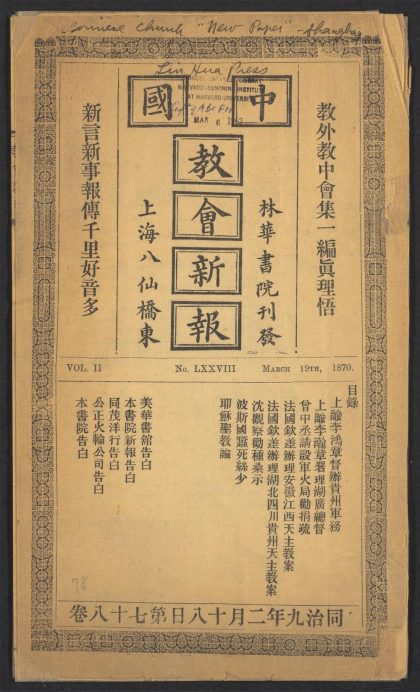 Chinese Church "New Paper" - Shanghai
Lin Hua Press
HARVARD-YENCHING INSTITUTE
AT HARVARD UNIVERSITY
MAR 6
中國
教會新報
教外教中會集一編眞理悟
林華書院刊發
上海八仙橋東
新言新事報傳千里好音多
VOL. II
No. LXXVIII
MARCH 19TH, 1870.
目錄
上諭李鴻章督辦貴州軍務
上諭李瀚章署理湖廣總督
曾中丞請設軍火局勸捐疏
法國欽差辦理安徽江西天主敎案
法國欽差辦理湖北四川貴州天主敎案
沈觀察勸種桑示
波斯國蠶死絲少
耶穌聖敎論
美華書館告白
本書院新報告白
同茂洋行告白
公正火輪公司告白
本書院告白
78
同治九年二月十八日第七十八卷